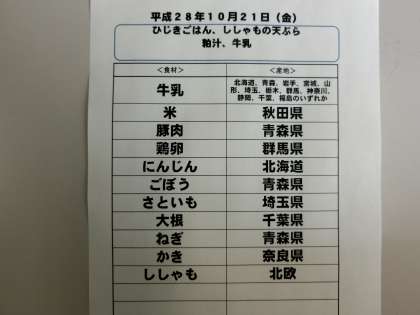 平成28年10月21日（金）
ひじきごはん、ししゃもの天ぷら
粕汁、牛乳
＜食材＞ ＜産地＞
牛乳 北海道、青森、岩手、宮城、山
形、埼玉、栃木、群馬、神奈川、
静岡、千葉、福島のいずれか
米 秋田県
豚肉 青森県
鶏卵 群馬県
にんじん 北海道
ごぼう 青森県
さといも 埼玉県
大根 千葉県
ねぎ 青森県
かき 奈良県
ししゃも 北欧